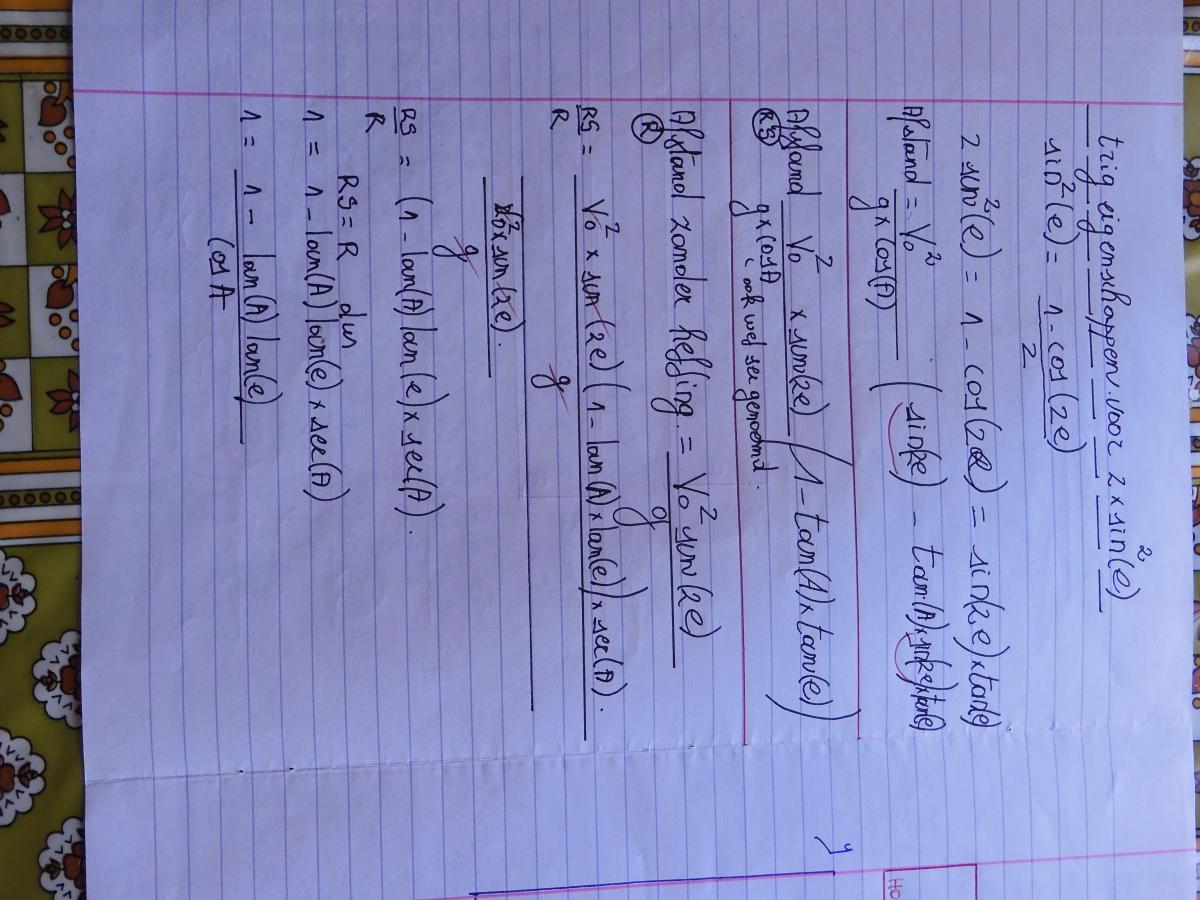 trig eigenschappen voor 2 x sin²(e)
sin²(e) = 1 - cos(2e)
2
2 sin²(e) = 1 - cos(2e) = sin(2e) x tan(e)
Afstand = V₀² (sin(2e) - tan(A) x sin(2e) x tan(e)
g x cos(A)
Afstand V₀² x sin(2e) (1 - tan(A) x tan(e))
RS g x cos A
ook wel sec genoemd.
Afstand zonder helling = V₀² sin(2e)
R g
RS = V₀² x sin(2e) (1 - tan(A) x tan(e)) x sec(A).
R g
V₀² x sin(2e).
g
RS = (1 - tan(A) tan(e) x sec(A).
R
RS = R dus
1 = 1 - tan(A) tan(e) x sec(A)
1 = 1 - tan(A) tan(e)
cos A
y
HO